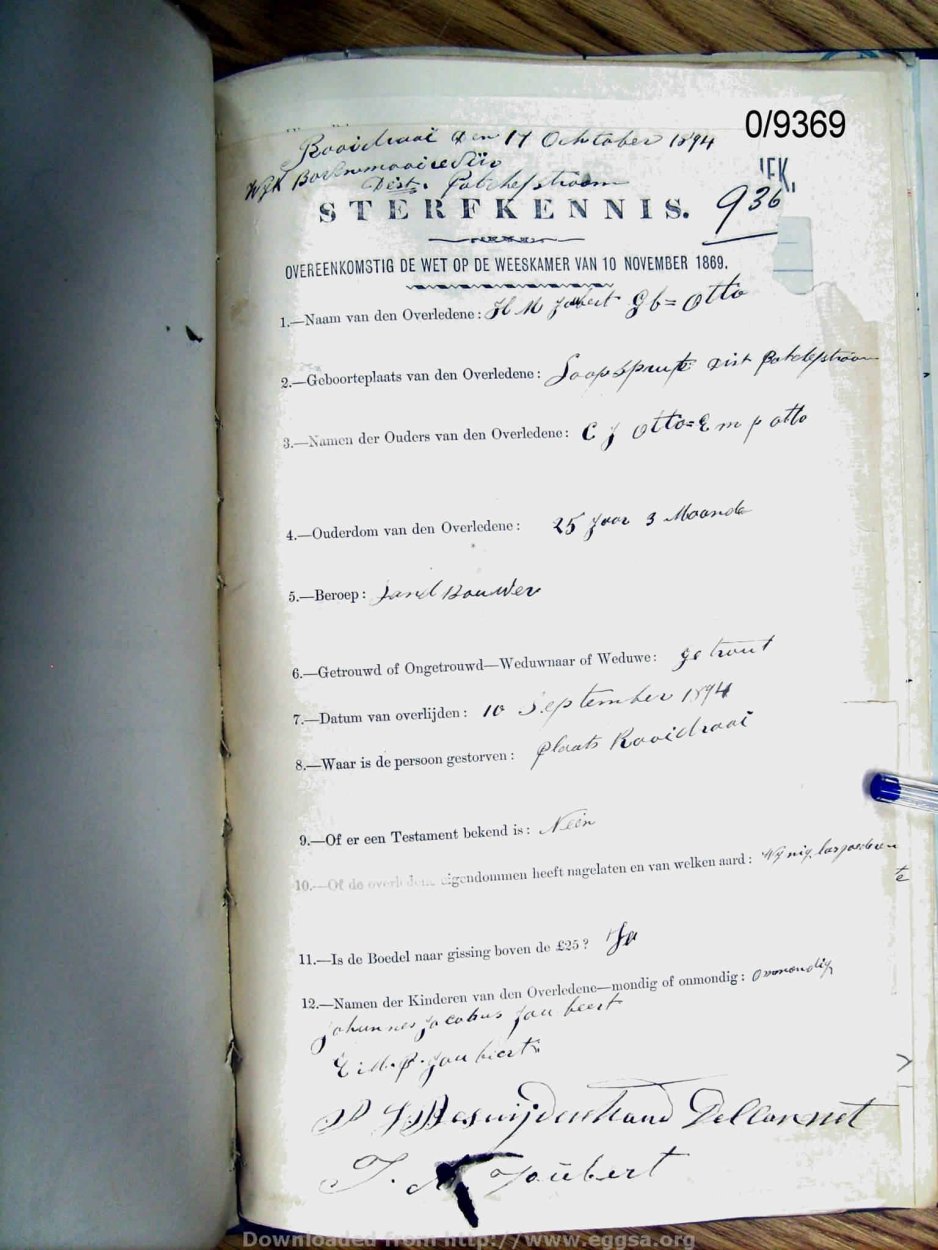 0/9369
Rooidraai den 17 October 1894
WyK
Dist. Potchefstroom
936
STERFKENNIS.
OVEREENKOMSTIG DE WET OP DE WEESKAMER VAN 10 NOVEMBER 1869.
1.—Naam van den Overledene: H M Joubert Gb= Otto
2.—Geboorteplaats van den Overledene: Loopspruit Dist Potchefstroom
3.—Namen der Ouders van den Overledene: C J Otto= E m p otto
4.—Ouderdom van den Overledene: 25 Jaar 3 Maande
5.—Beroep: Land Bouwer
6.—Getrouwd of Ongetrouwd—Weduwnaar of Weduwe: getrout
7.—Datum van overlijden: 10 September 1894
8.—Waar is de persoon gestorven: plaats Rooidraai
9.—Of er een Testament bekend is: Neen
10.—Of de overledene eigendommen heeft nagelaten en van welken aard: Wynig
11.—Is de Boedel naar gissing boven de £25? Ja
12.—Namen der Kinderen van den Overledene—mondig of onmondig: Onmondig
Johannes Jacobus Joubeert
E. M. P. Joubiert
Joubert
Downloaded from http://www.eggsa.org